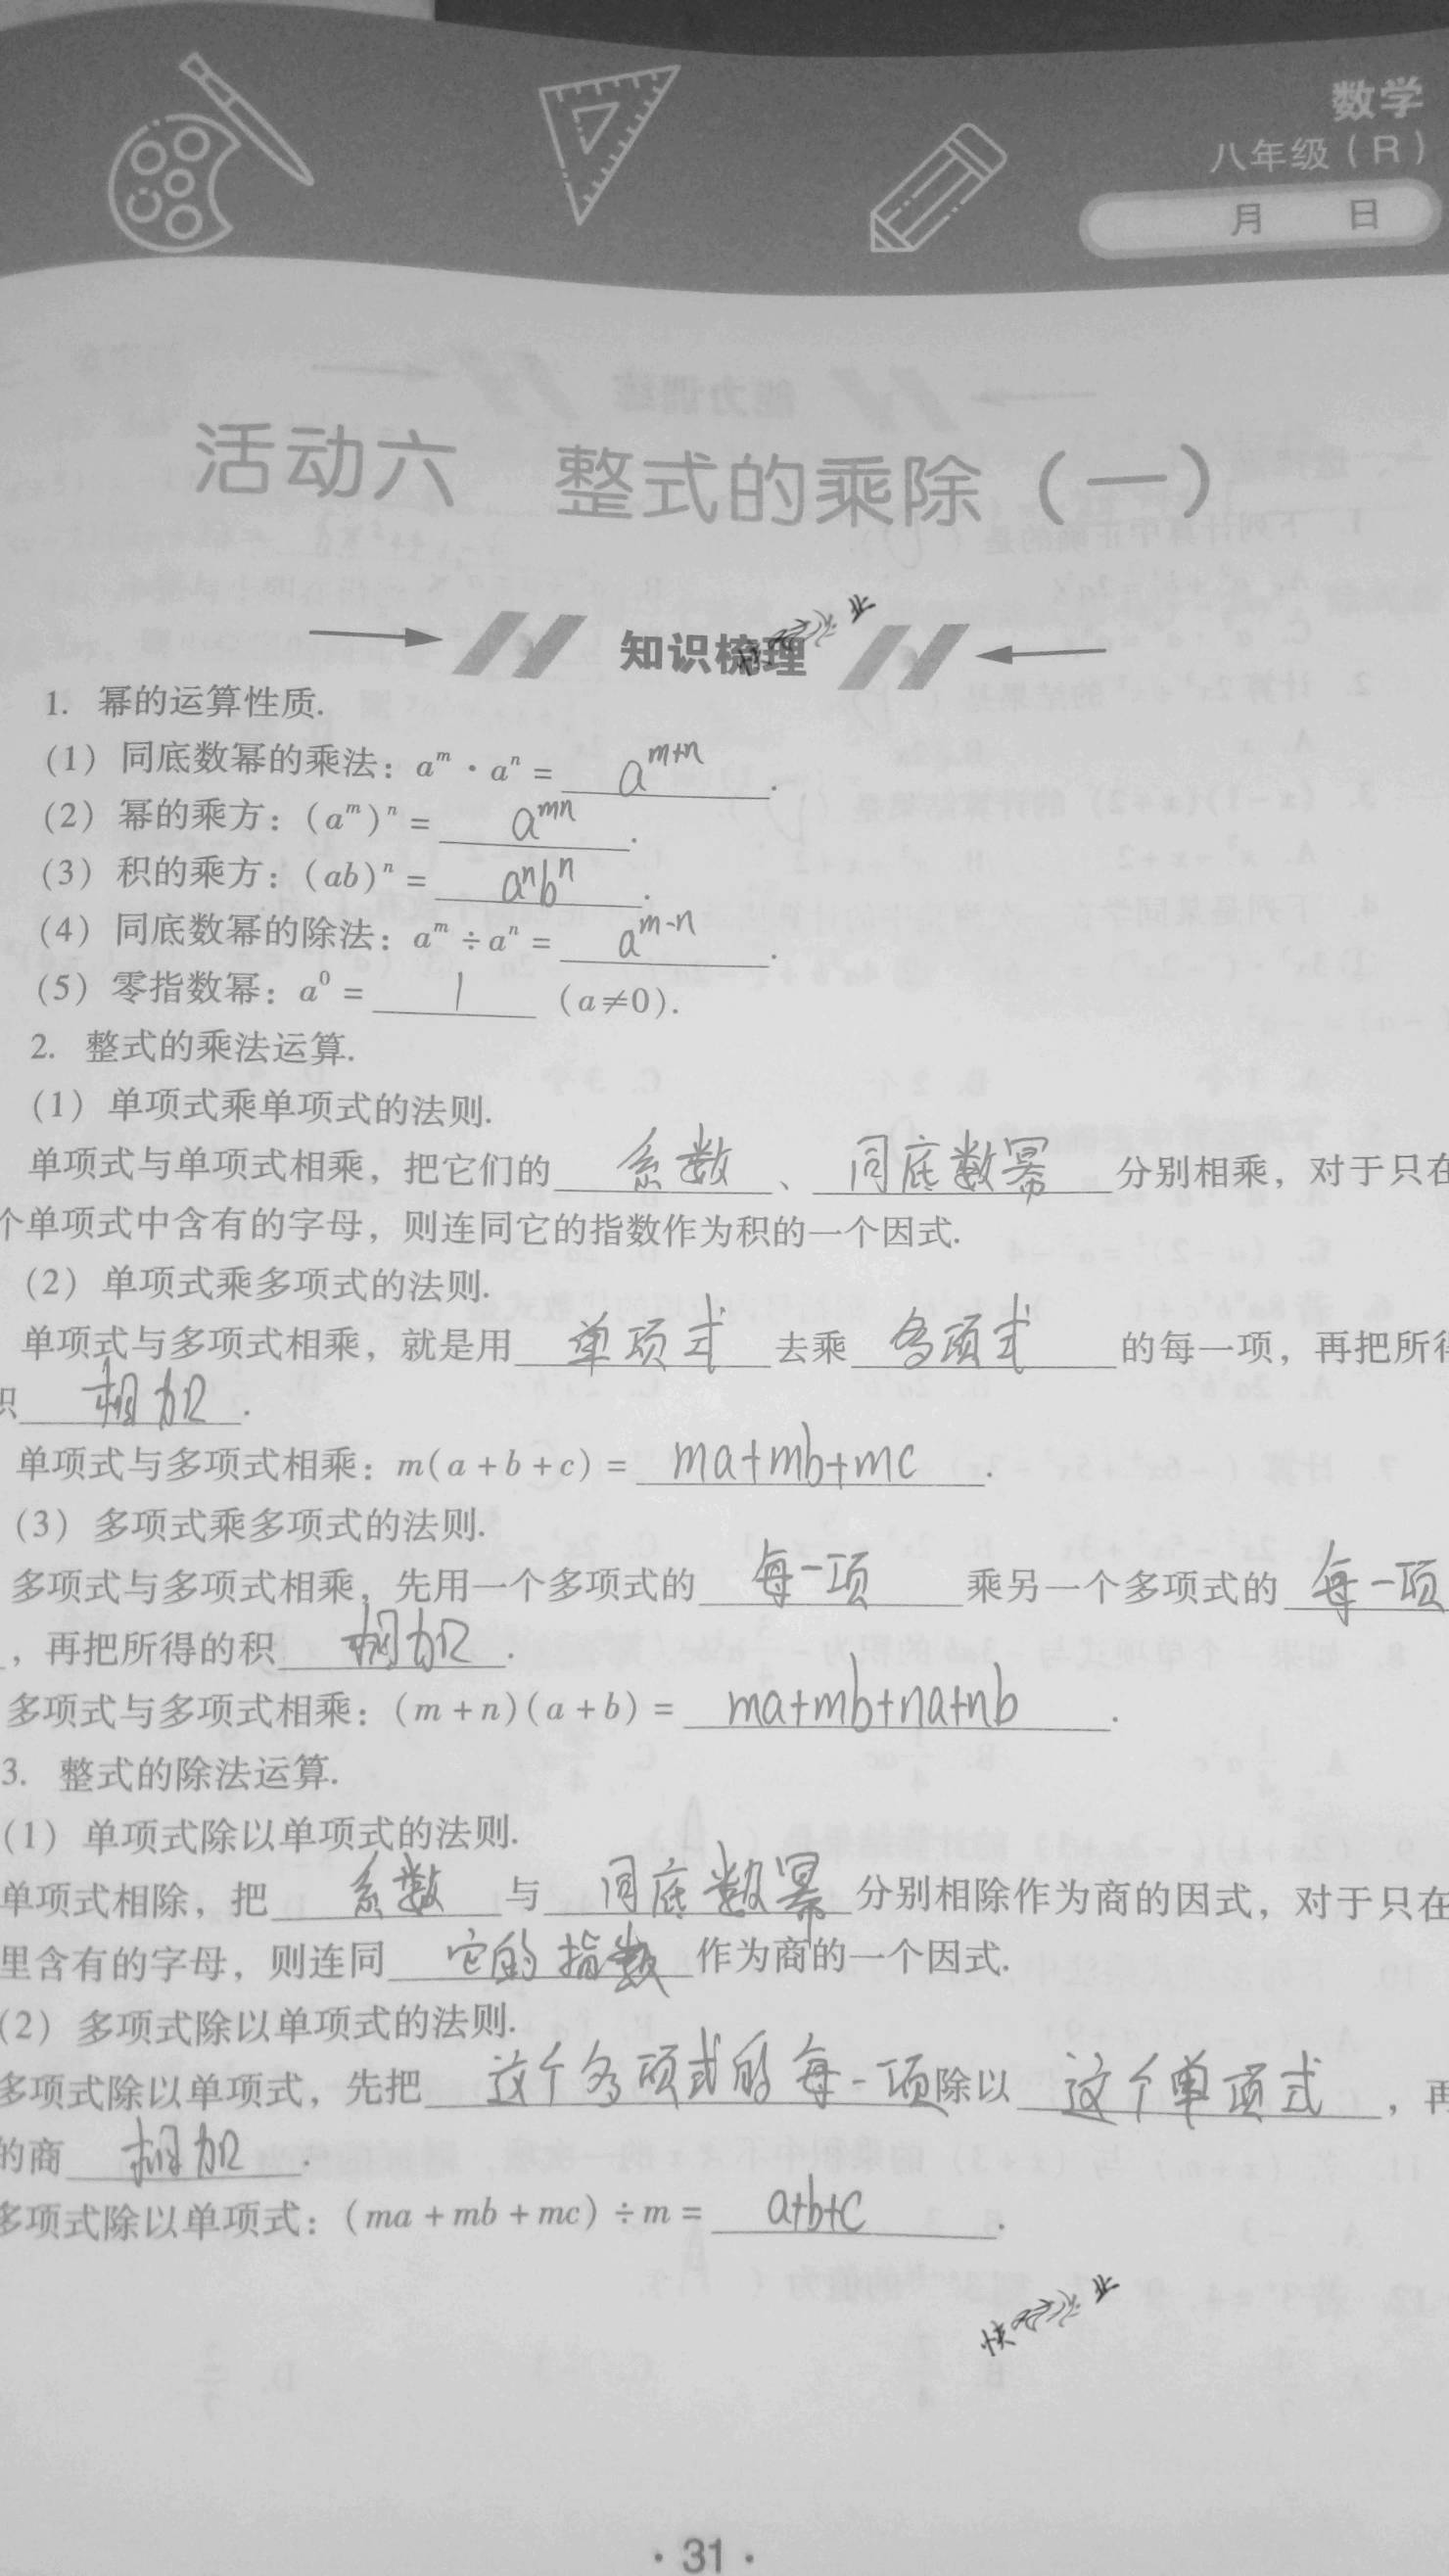 数学
八年级（R）
月 日
活动六 整式的乘除（一）
知识梳理
1. 幂的运算性质.
（1）同底数幂的乘法：aᵐ·aⁿ= aᵐ⁺ⁿ .
（2）幂的乘方：（aᵐ）ⁿ= aᵐⁿ .
（3）积的乘方：（ab）ⁿ= aⁿbⁿ .
（4）同底数幂的除法：aᵐ÷aⁿ= aᵐ⁻ⁿ .
（5）零指数幂：a⁰= 1 （a≠0）.
2. 整式的乘法运算.
（1）单项式乘单项式的法则.
单项式与单项式相乘，把它们的 系数 、 同底数幂 分别相乘，对于只在
个单项式中含有的字母，则连同它的指数作为积的一个因式.
（2）单项式乘多项式的法则.
单项式与多项式相乘，就是用 单项式 去乘 多项式 的每一项，再把所得
积 相加 .
单项式与多项式相乘：m(a+b+c)= ma+mb+mc .
（3）多项式乘多项式的法则.
多项式与多项式相乘，先用一个多项式的 每一项 乘另一个多项式的 每一项
，再把所得的积 相加 .
多项式与多项式相乘：(m+n)(a+b)= ma+mb+na+nb .
3. 整式的除法运算.
（1）单项式除以单项式的法则.
单项式相除，把 系数 与 同底数幂 分别相除作为商的因式，对于只在
里含有的字母，则连同 它的指数 作为商的一个因式.
（2）多项式除以单项式的法则.
多项式除以单项式，先把 这个多项式的每一项 除以 这个单项式 ，再
的商 相加 .
多项式除以单项式：(ma+mb+mc)÷m= a+b+c .
·31·